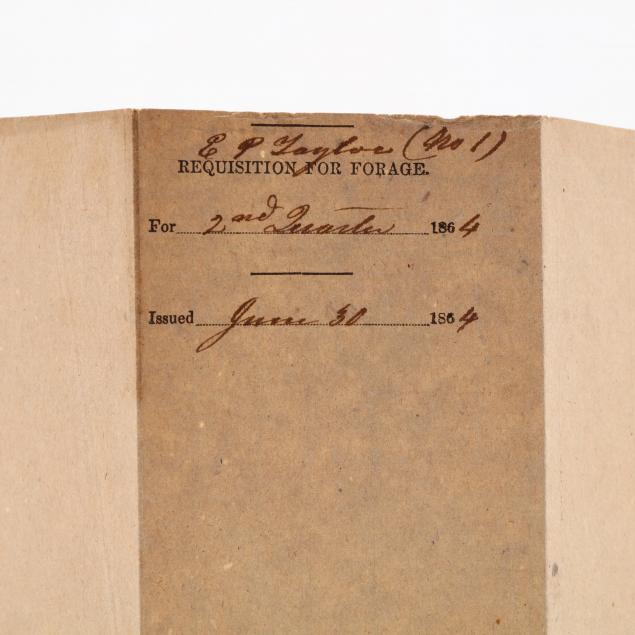 E P Tayloe (No 1)
REQUISITION FOR FORAGE.
For 2nd Quarter 1864
Issued June 30 1864